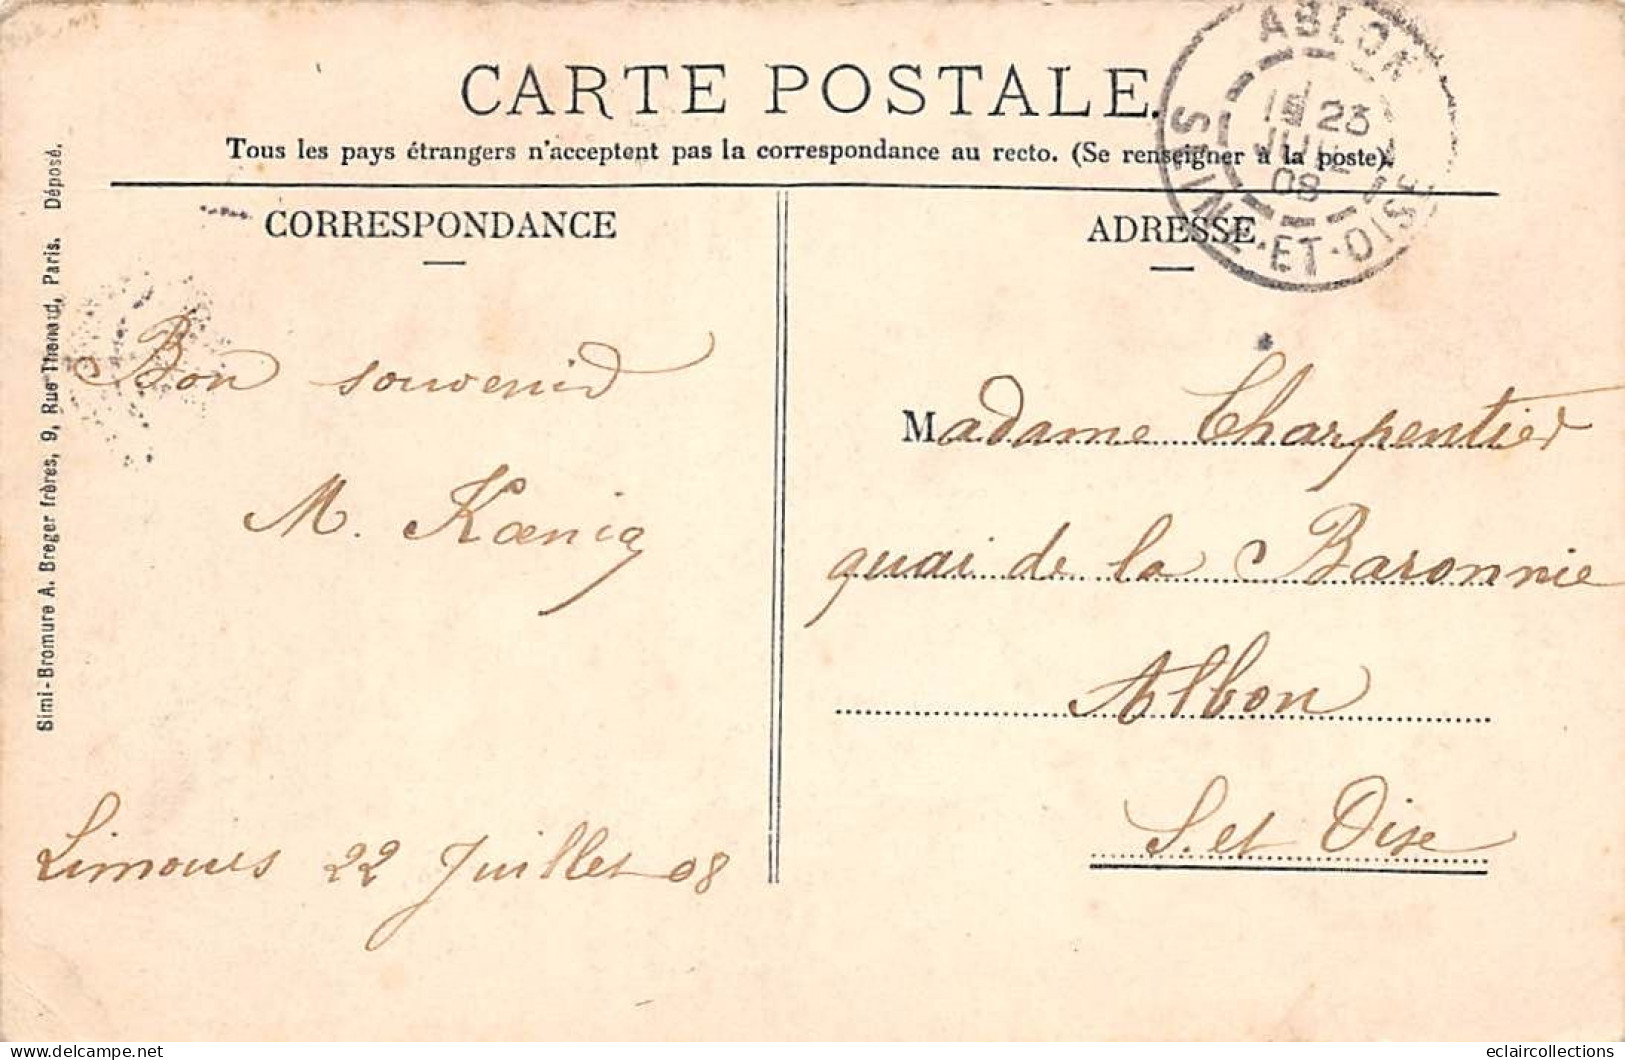 CARTE POSTALE.
Tous les pays étrangers n'acceptent pas la correspondance au recto. (Se renseigner à la poste).
CORRESPONDANCE
Bon souvenir
M. Kœnig
Limours 22 Juillet 08
ADRESSE
Madame Charpentier
quai de la Baronnie
Albon
S. et Oise
ABLON
23
JUIL
08
SEINE-ET-OISE
Simi-Bromure A. Breger frères, 9, Rue Thenard, Paris. Déposé.
eclaircollections